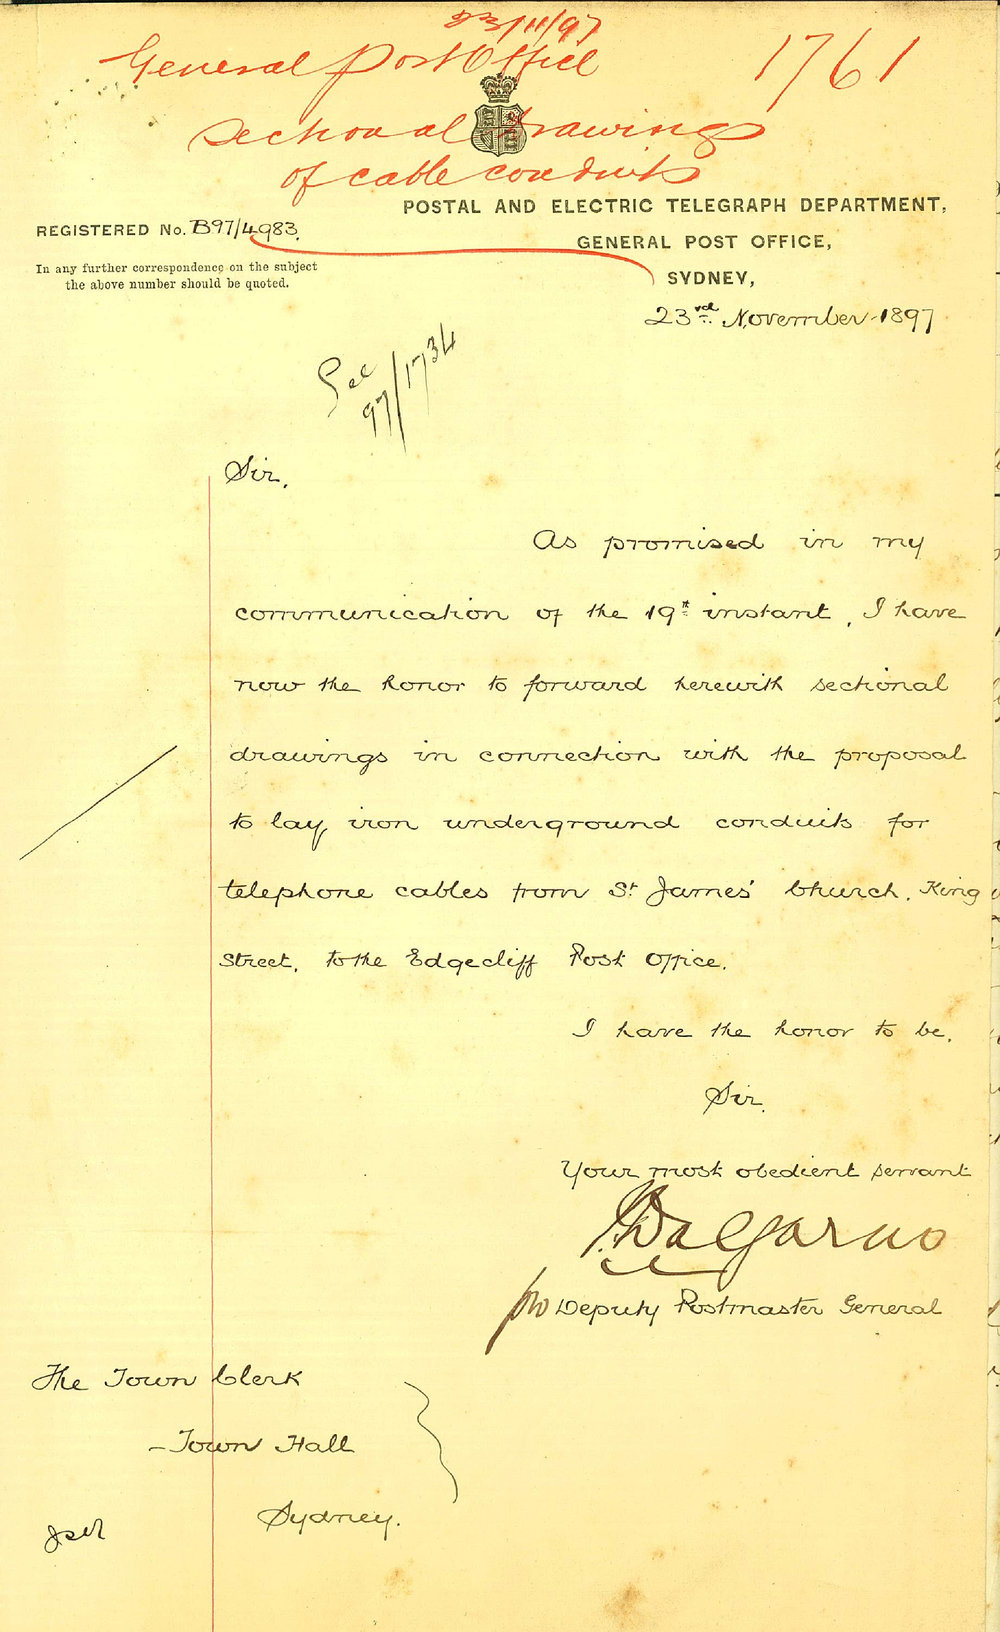 23/11/97
General Post Office
1761
Sectional Drawings
of cable conduits
POSTAL AND ELECTRIC TELEGRAPH DEPARTMENT,
REGISTERED No. B97/4983.
GENERAL POST OFFICE,
In any further correspondence on the subject
the above number should be quoted.
SYDNEY,
23rd November 1897
See
97/1734
Sir,
As promised in my
communication of the 19th instant, I have
now the honor to forward herewith sectional
drawings in connection with the proposal
to lay iron underground conduits for
telephone cables from St James' Church, King
Street, to the Edgecliff Post Office.
I have the honor to be,
Sir,
Your most obedient servant
Dalgarno
pro Deputy Postmaster General
The Town Clerk
Town Hall
Sydney.